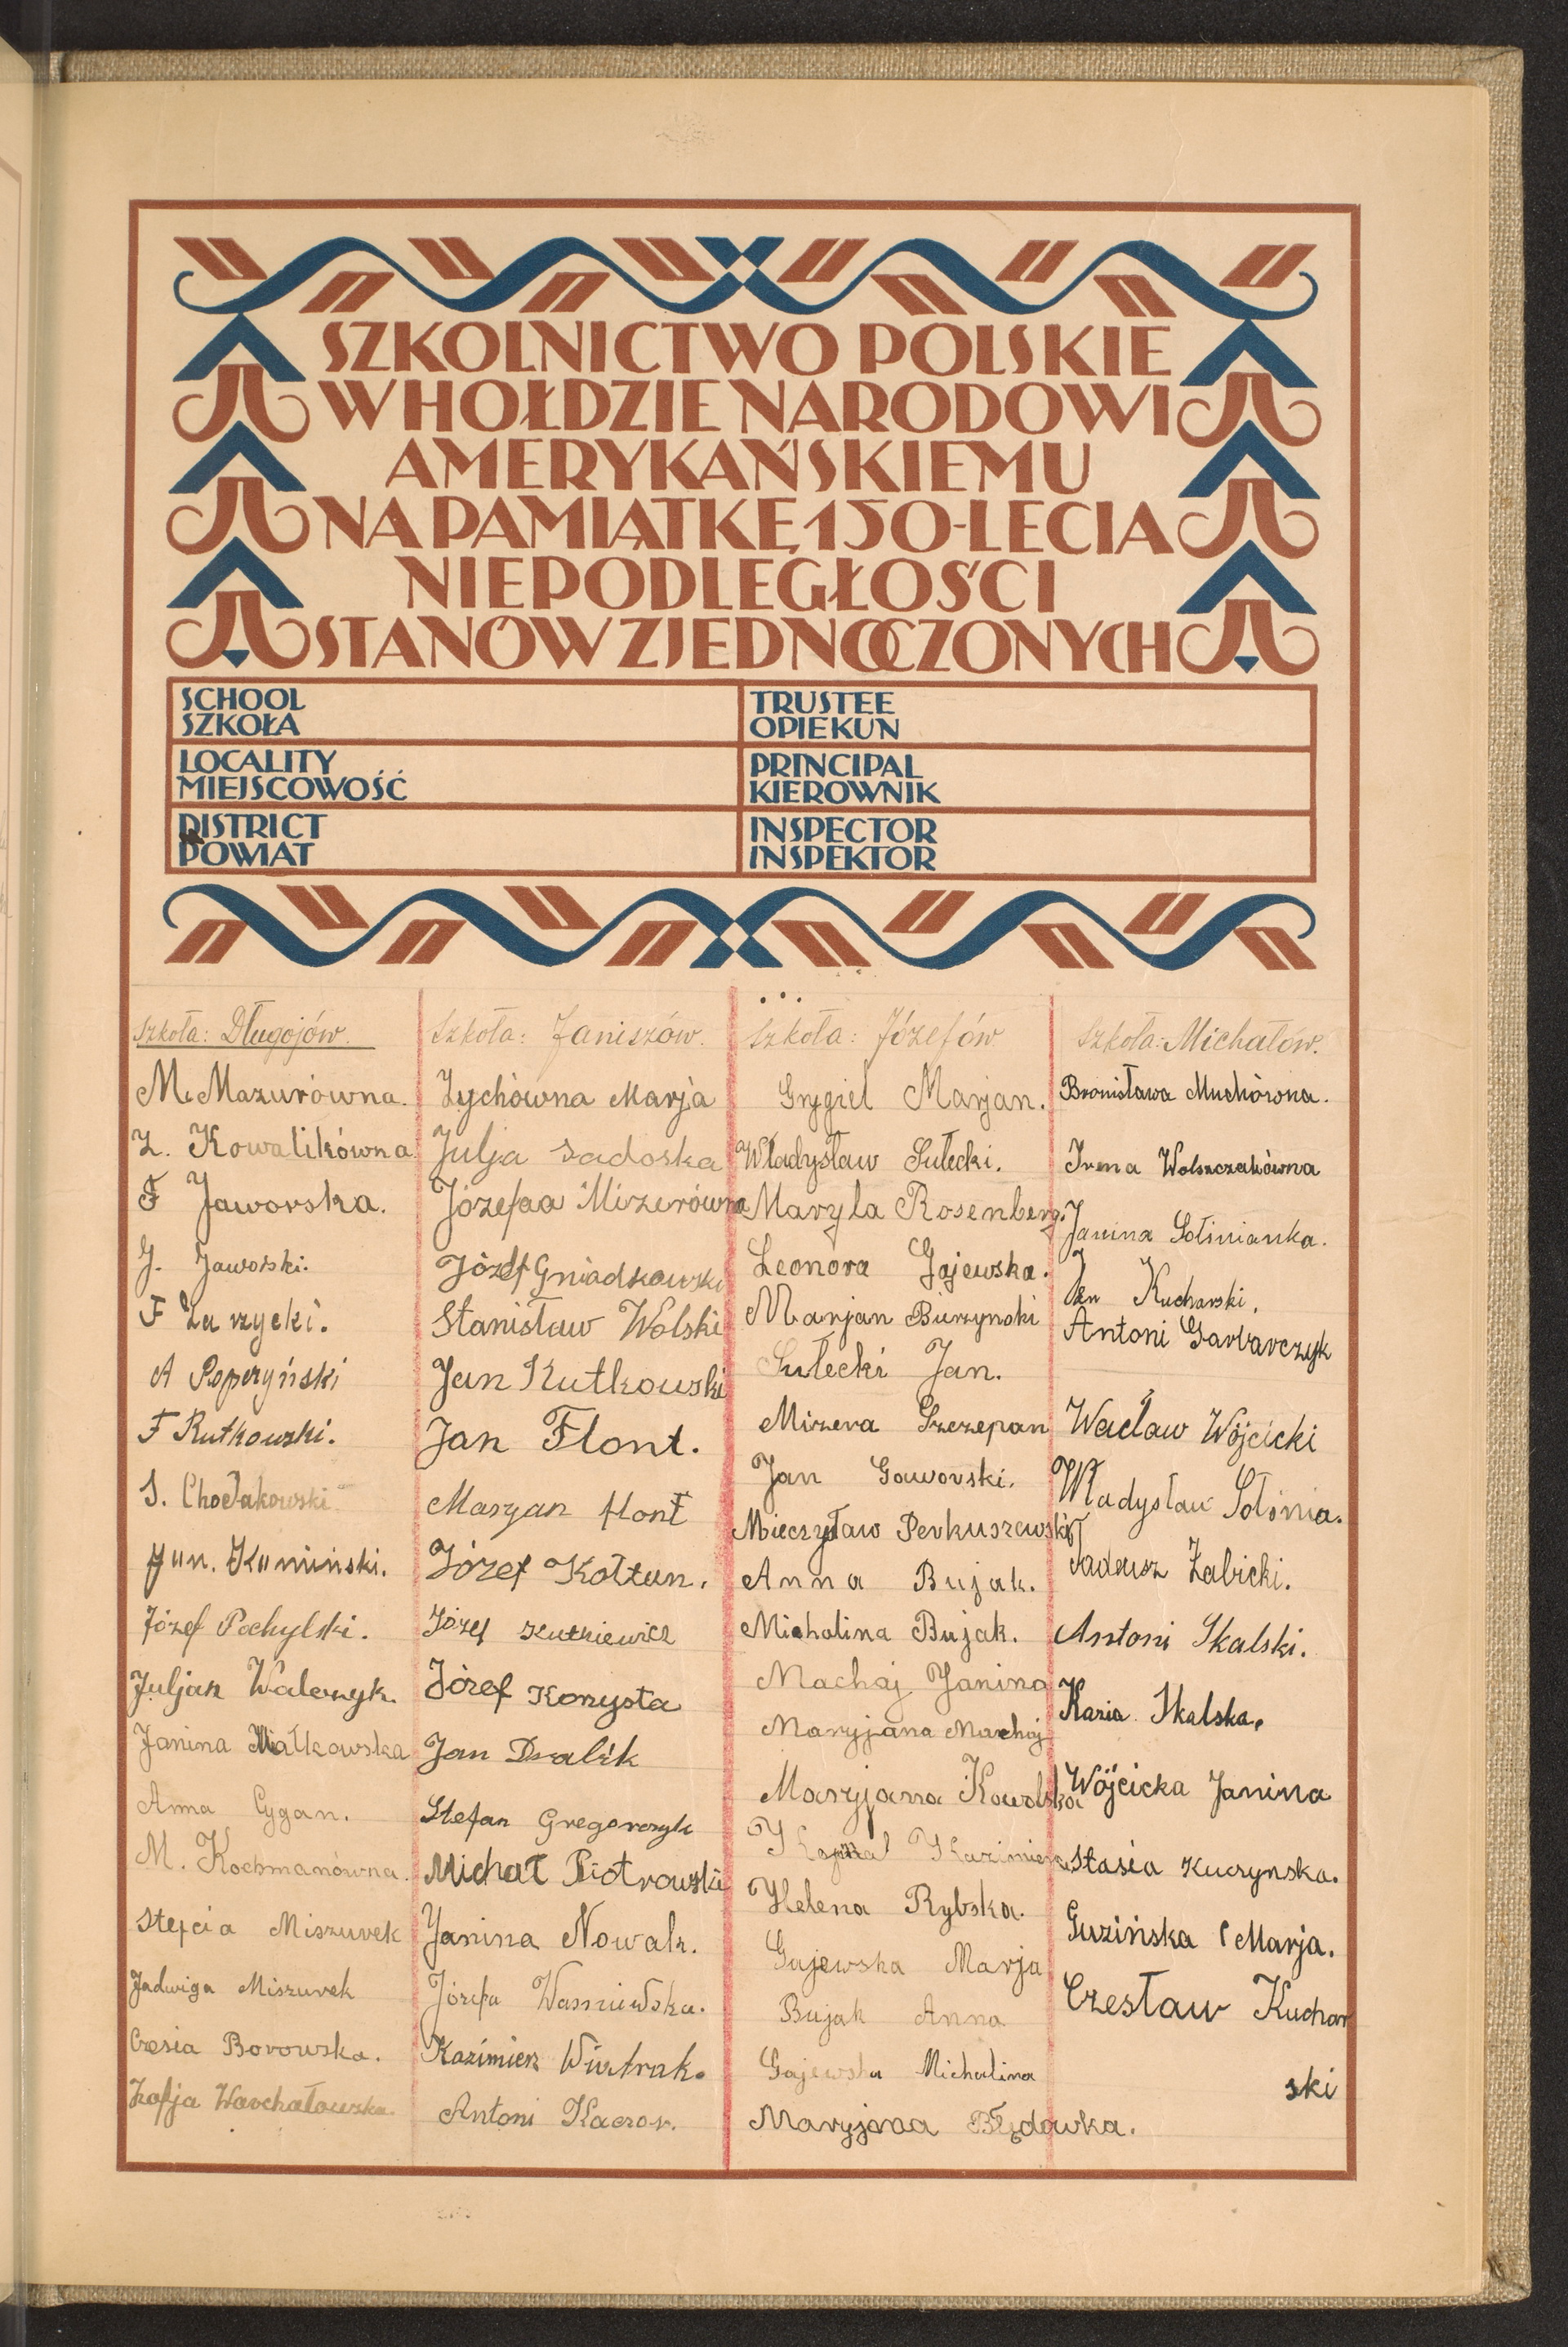 SZKOLNICTWO POLSKIE
W HOŁDZIE NARODOWI
AMERYKAŃSKIEMU
NA PAMIĄTKĘ 150-LECIA
NIEPODLEGŁOŚCI
STANÓW ZJEDNOCZONYCH
SCHOOL
SZKOŁA
TRUSTEE
OPIEKUN
LOCALITY
MIEJSCOWOŚĆ
PRINCIPAL
KIEROWNIK
DISTRICT
POWIAT
INSPECTOR
INSPEKTOR
Szkoła: Długojów.
M. Mazurówna.
Z. Kowalikówna
F Jaworska.
J. Jaworski.
F Zarzycki.
A Poperzyński
F Rutkowski.
S. Chocłakowski
Jan. Kamiński.
Józef Pochylski.
Juljan Walerzyk.
Janina Miałkowska
Anna Cygan.
M. Kochmanówna.
Stefcia Miszurek
Jadwiga Miszurek
Czesia Borowska.
Zofja Warchałowska.
Szkoła: Janiszów.
Zychówna Marja
Julja Sadoska
Józefaa Mizerówna
Józef Gniadkowski
Stanisław Wolski
Jan Rutkowski
Jan Flont.
Maryan flont
Józef Kołtun.
Józef Kutkiewicz
Józef Korzysta
Jan Dralik
Stefan Gregorczyk
Michał Piotrowski
Janina Nowak.
Józefa Wasniewska.
Kazimierz Wiatrak.
Antoni Kaczor.
Szkoła: Józefów
Grygiel Marjan.
Władysław Sułecki.
Maryla Rosenberg.
Leonora Gajewska.
Marjan Burzynski
Sułecki Jan.
Mizera Szczepan
Jan Gaworski.
Mieczysław Perkuszewski
Anna Bujak.
Michalina Bujak.
Machaj Janina
Maryjana Machaj
Maryjana Kowalska
Helena Rybska.
Gajewska Marja
Bujak Anna
Gajewska Michalina
Maryjana Błędowka.
Szkoła: Michałów.
Bronisława Muchówna.
Irena Wolszczakówna
Janina Sołśnianka.
Jan Kucharski.
Antoni Garbarczyk
Wacław Wójcicki
Władysław Sołśnia.
Tadeusz Żabicki.
Antoni Skalski.
Kazia Skalska.
Wójcicka Janina
Stasia Kuczynska.
Guzińska Marja.
Czesław Kuchar
ski